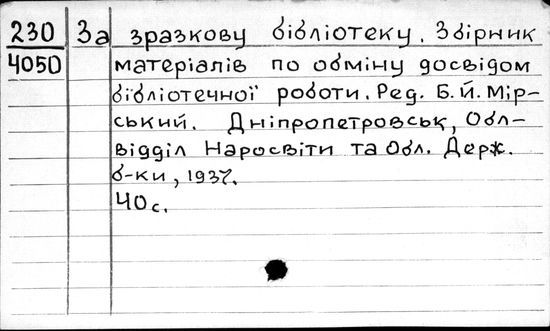 230 За зразкову бібліотеку. Збірник
4050 матеріалів по обміну досвідом
бібліотечної роботи. Ред. Б.Й. Мір-
ський. Дніпропетровськ, Обл-
відділ Наросвіти та Обл. Держ.
б-ки, 1937.
40 с.